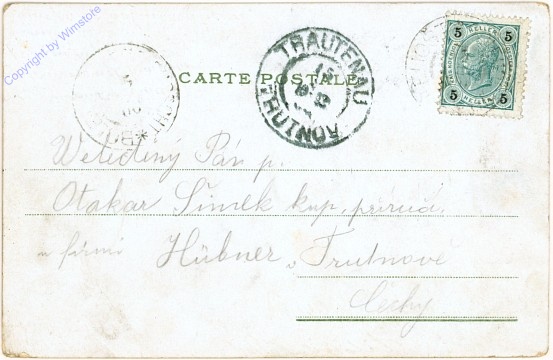 Copyright by Wimstore
CARTE POSTALE
TRAUTENAU
TRUTNOV
5 5
5 5
Veledený Pán p.
Otakar Šimek kup. příruč.
u firmi Hübner v Trutnově
Čechy